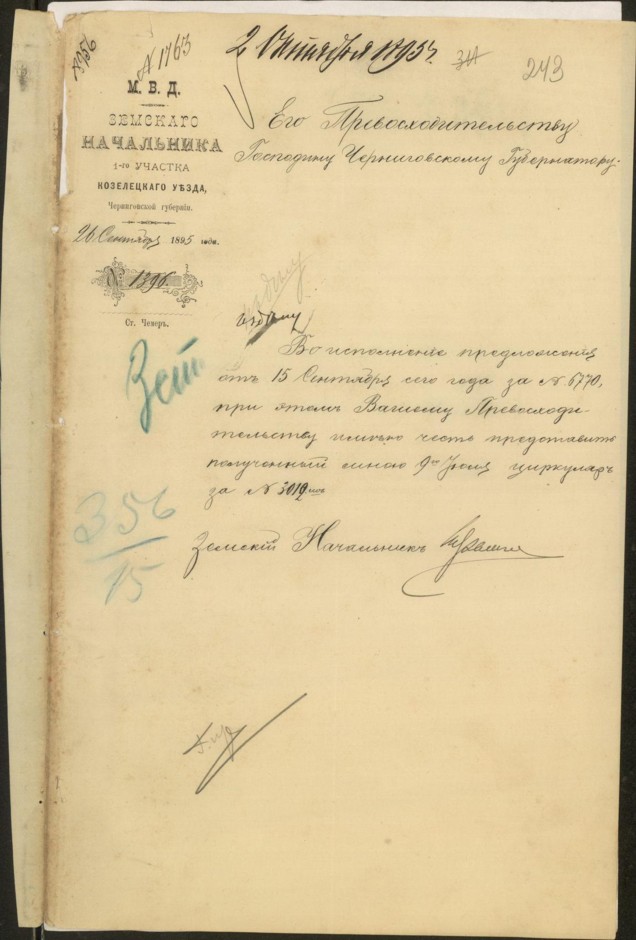 № 1763
2 Октября 1895 г.
243
М. В. Д.
ЗЕМСКАГО
НАЧАЛЬНИКА
1-го УЧАСТКА
КОЗЕЛЕЦКАГО УѢЗДА,
Черниговской губерніи.
26 Сентября 1895 года.
№ 1396.
Ст. Чемеръ.
Его Превосходительству
Господину Черниговскому Губернатору.
Во исполненіе предложенія
отъ 15 Сентября сего года за № 6770,
при этомъ Вашему Превосходи-
тельству имѣю честь представить
полученный мною 9го Іюля циркуляръ
за № 3019
Земскій Начальникъ
356
15